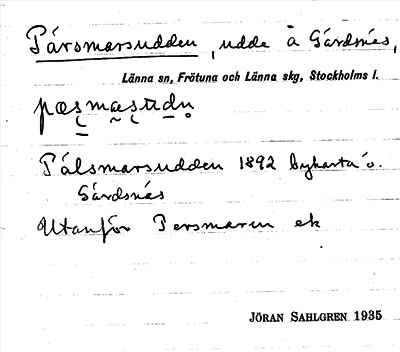 Pärsmarsudden, udde å Gärdsnäs,
Länna sn, Frötuna och Länna skg, Stockholms l.
Pålsmarsudden 1892 Bykarta ö.
Gärdsnäs
Utanför Persmaren ek
JÖRAN SAHLGREN 1935